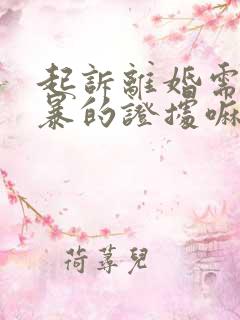 起訴離婚需
暴的證據嘛
荷蕁兒